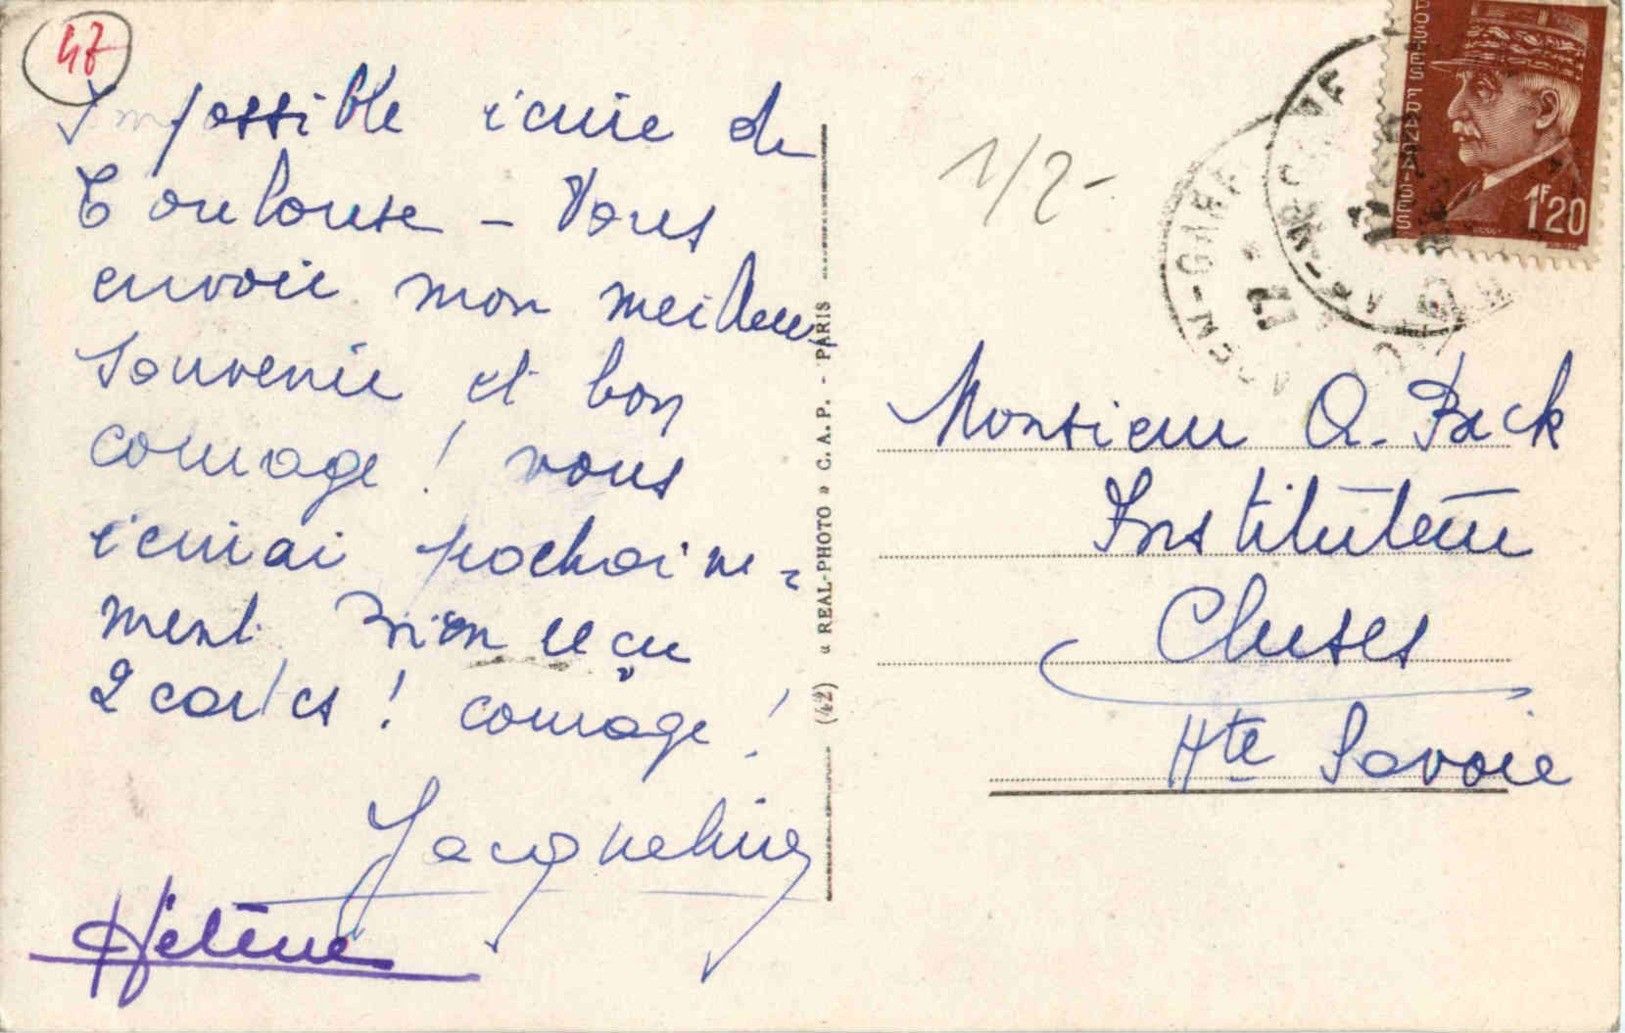 47
Impossible écrire de
Toulouse - Vous
envoie mon meilleur
souvenir et bon
courage ! vous
écrirai prochaine-
ment. Bien reçu
2 cartes ! courage !
Jacqueline
Hélène
(42) « REAL-PHOTO » C. A. P. - PARIS
1/2-
POSTES FRANÇAISES
1F20
Monsieur A. Back
Instituteur
Cluses
Hte Savoie